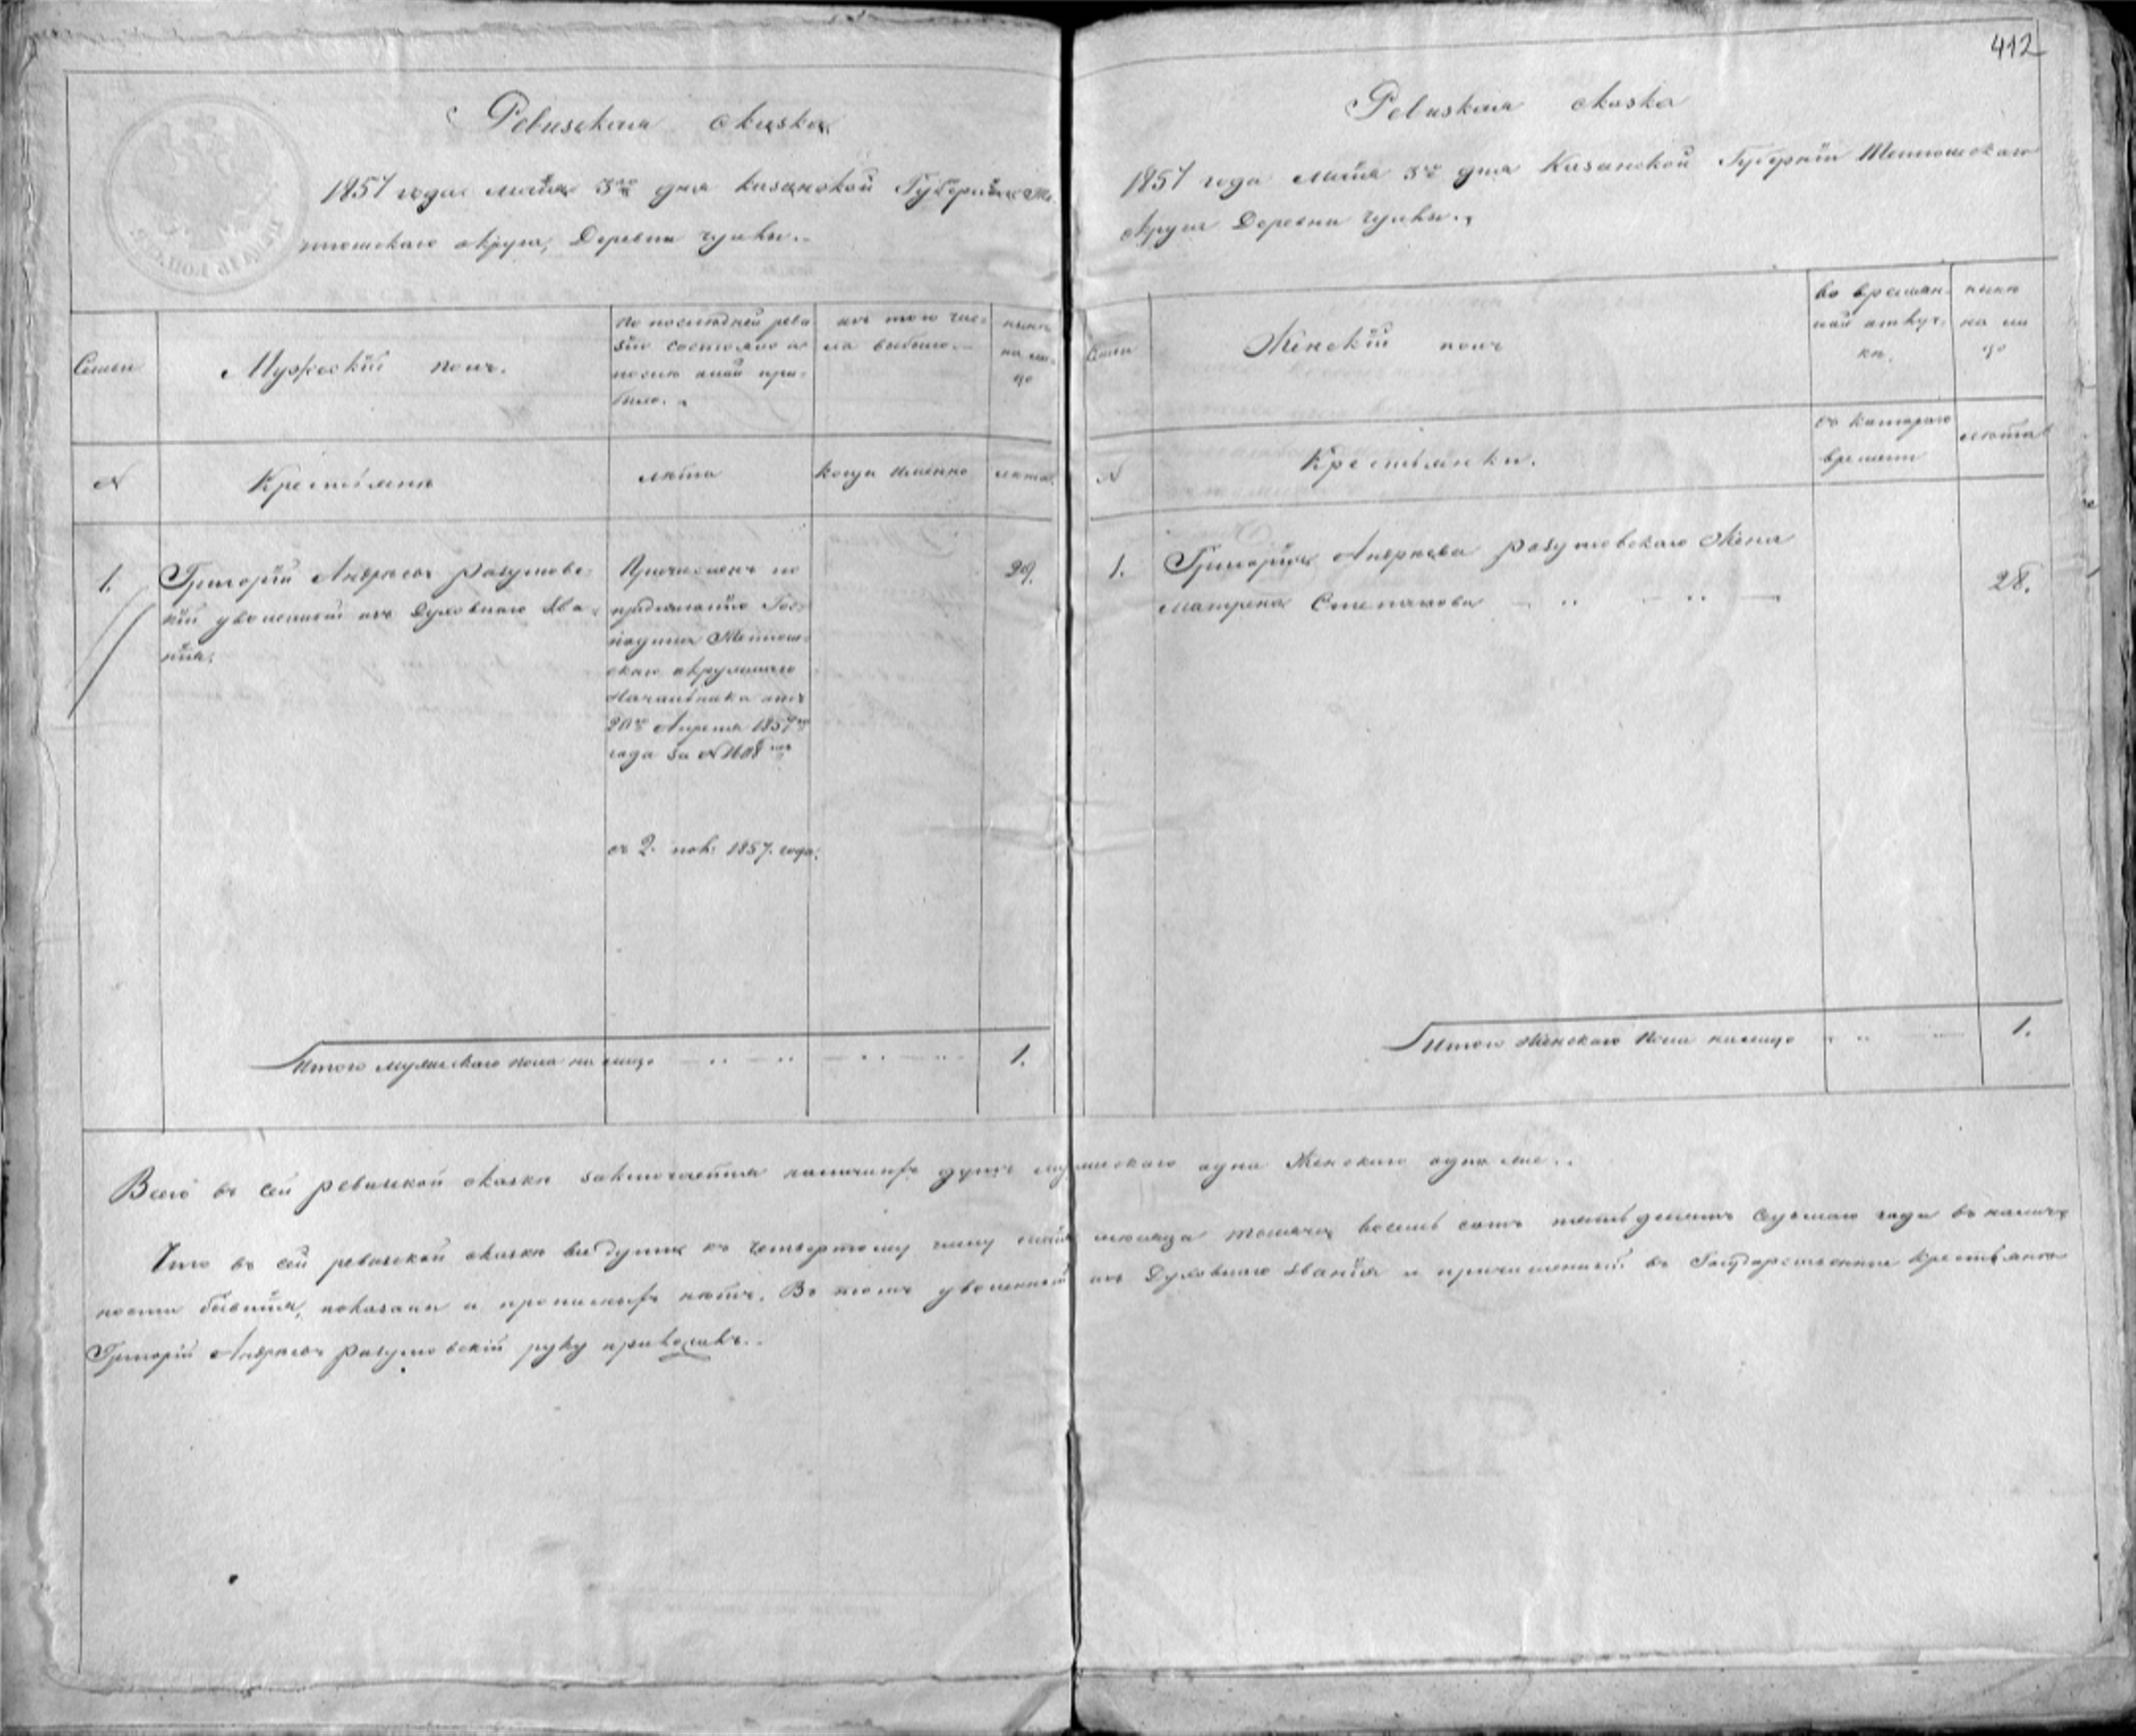 Ревизская сказка
1857 года маія 3го дня казанской Губерніи Те
тюшскаго округа, Деревни
Семьи
Мужескій полъ.
По последней реви
зіи состояло и
после оной при
было.
изъ того чис
ла выбыло.
ныне
на ли
цо
№
Крестьяне
лѣта
когда именно
лѣта
1.
Григорій Андреевъ разумовс
кій уволенный изъ Духовнаго зва
нія.
Причисленъ по
предписанію Гос
подина Тетюш
скаго окружнаго
Начальника отъ
20го Апреля 1857го
года за №
съ 2. пол. 1857. года.
29.
Итого мужескаго пола на лицо
1.
412
Ревизская сказка
1857 года Маія 3го дня Казанской Губерніи Тетюшскаго
округа Деревни
Семьи
Женскій полъ
во времян
ной отлуч
ке.
ныне
на ли
цо
№
Крестьянки.
съ котораго
времени
лѣта
1.
Григорія Андреева разумовскаго Жена
Матрена Степанова
28.
Итого женскаго пола налицо
1.
Всего въ сей ревизской сказке заключается наличныхъ душъ мужескаго одна Женскаго одна же.
Что въ сей ревизской сказке все душа къ четвертому числу маія месяца тысяча восемь сотъ пятьдесятъ седьмаго года въ налич
ности бывшія, показаны и прописныхъ нѣтъ. Въ томъ уволенный изъ Духовнаго званія и причисленный въ Государственные крестьяне
Григорій Андреевъ разумовскій руку приложилъ.